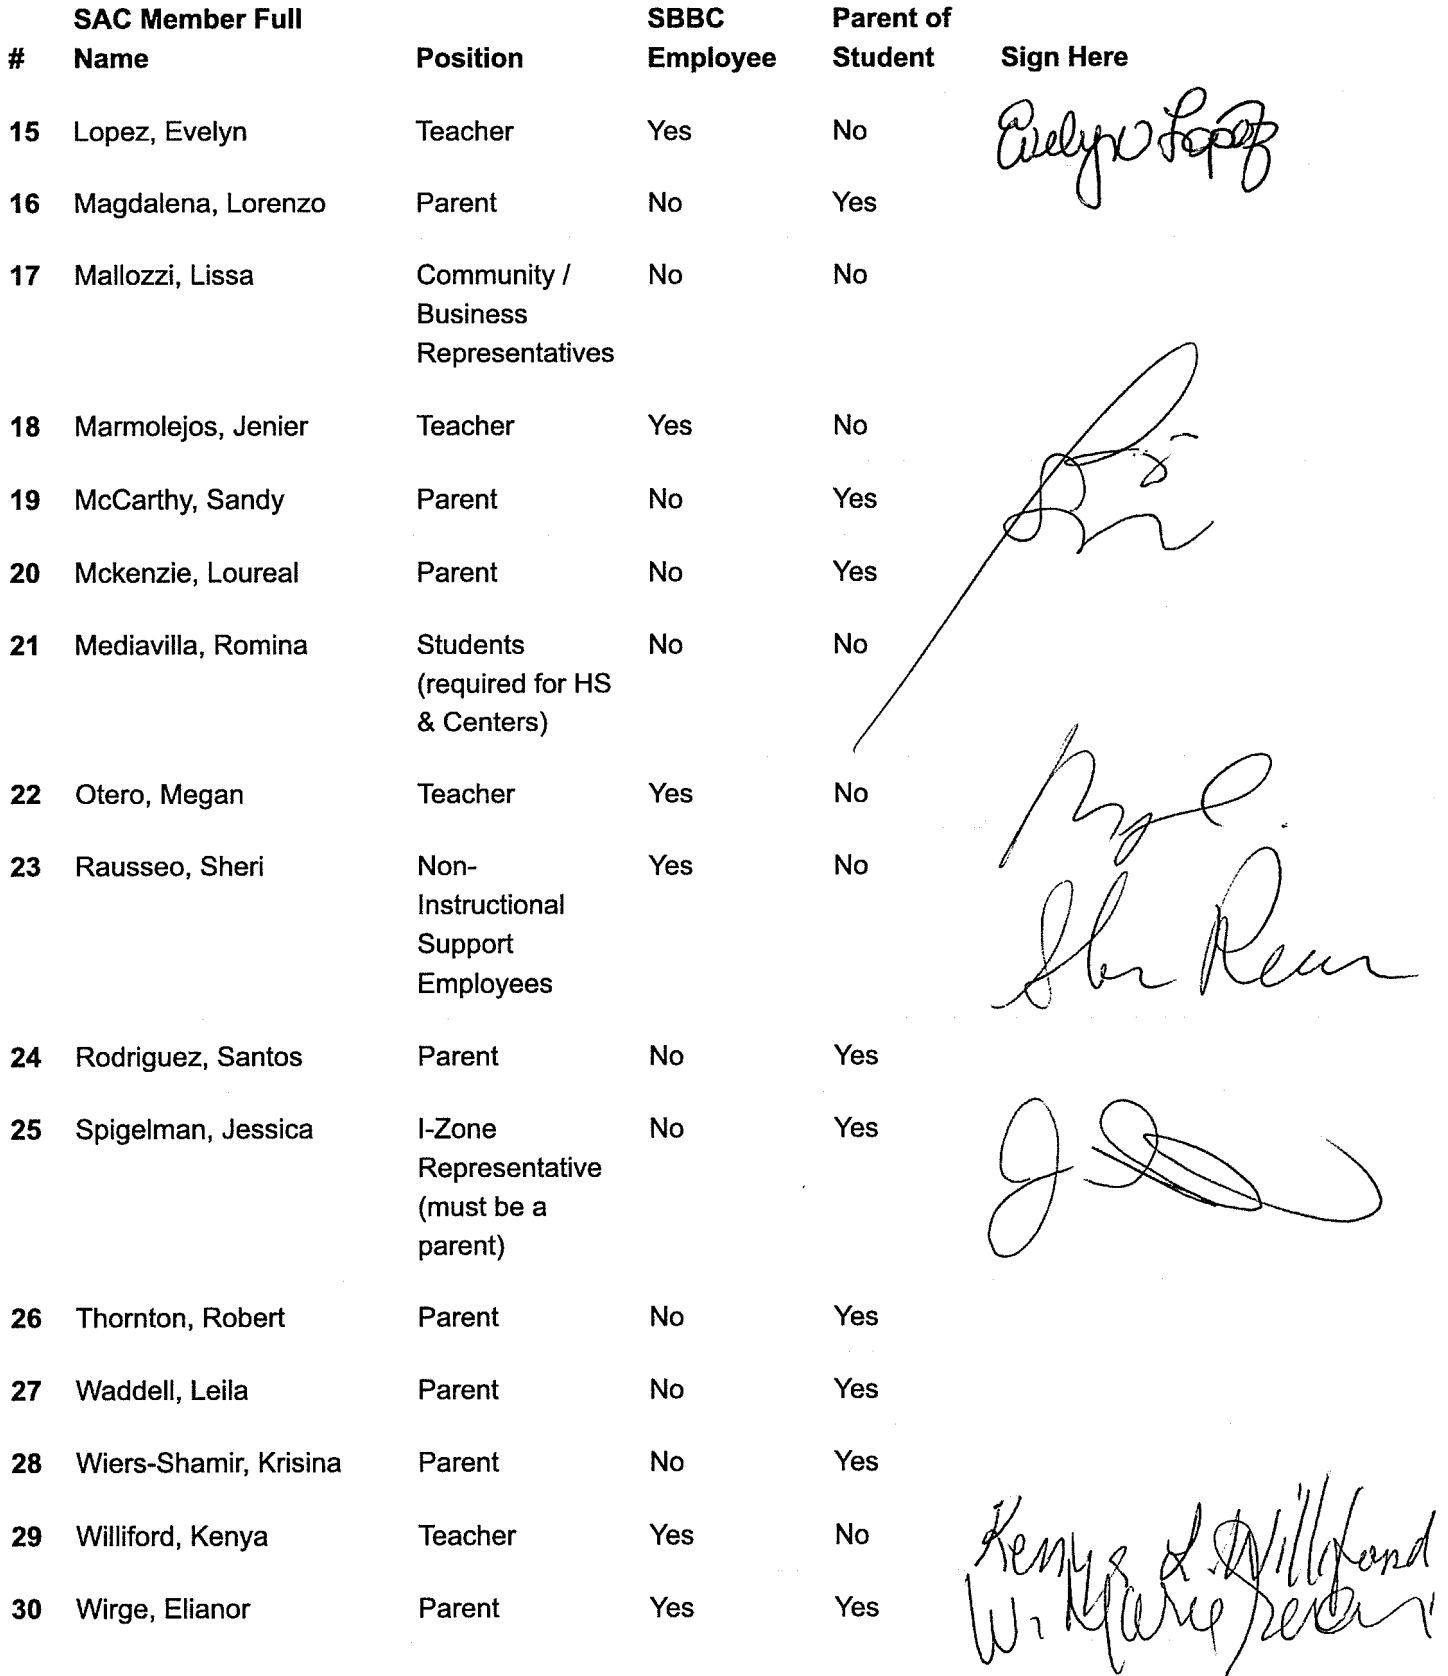 SAC Member Full SBBC Parent of
# Name Position Employee Student Sign Here
15 Lopez, Evelyn Teacher Yes No Evelyn Lopez
16 Magdalena, Lorenzo Parent No Yes
17 Mallozzi, Lissa Community / No No
Business
Representatives
18 Marmolejos, Jenier Teacher Yes No
19 McCarthy, Sandy Parent No Yes
20 Mckenzie, Loureal Parent No Yes
21 Mediavilla, Romina Students No No
(required for HS
& Centers)
22 Otero, Megan Teacher Yes No
23 Rausseo, Sheri Non- Yes No
Instructional
Support
Employees
24 Rodriguez, Santos Parent No Yes
25 Spigelman, Jessica I-Zone No Yes
Representative
(must be a
parent)
26 Thornton, Robert Parent No Yes
27 Waddell, Leila Parent No Yes
28 Wiers-Shamir, Krisina Parent No Yes
29 Williford, Kenya Teacher Yes No Kenya L. Williford
30 Wirge, Elianor Parent Yes Yes W. Marie